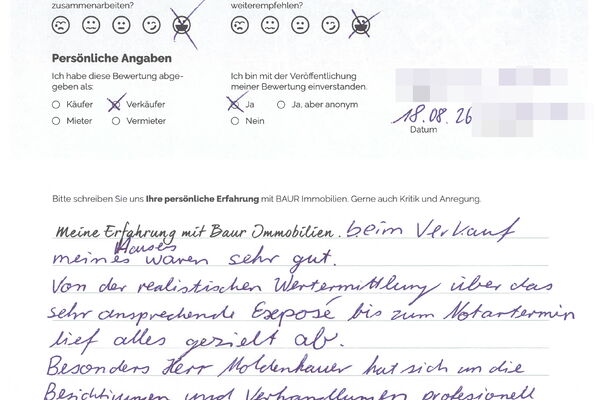 zusammenarbeiten?
weiterempfehlen?
Persönliche Angaben
Ich habe diese Bewertung abge-
geben als:
Ich bin mit der Veröffentlichung
meiner Bewertung einverstanden.
Käufer
Verkäufer
Ja
Ja, aber anonym
Mieter
Vermieter
Nein
18.08.26
Datum
Bitte schreiben Sie uns Ihre persönliche Erfahrung mit BAUR Immobilien. Gerne auch Kritik und Anregung.
Meine Erfahrung mit Baur Immobilien. beim Verkauf
Hauses
meines waren sehr gut.
Von der realistischen Wertermittlung über das
sehr ansprechende Exposé bis zum Notartermin
lief alles gezielt ab.
Besonders Herr Moldenhauer hat sich um die
Besichtigungen und Verhandlungen profesionell